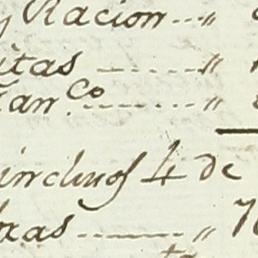 y Racion .. "
itas ------ "
Tan.co ------ "
incluos 4 de
xas ------ " 7